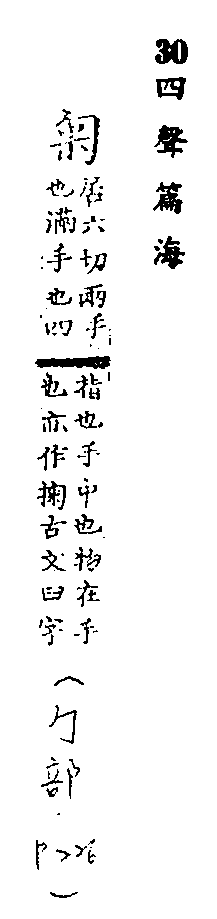 30四聲篇海
居六切兩手
也滿手也四
指也手中也物在手
也亦作掬古文臼字
(勹部.